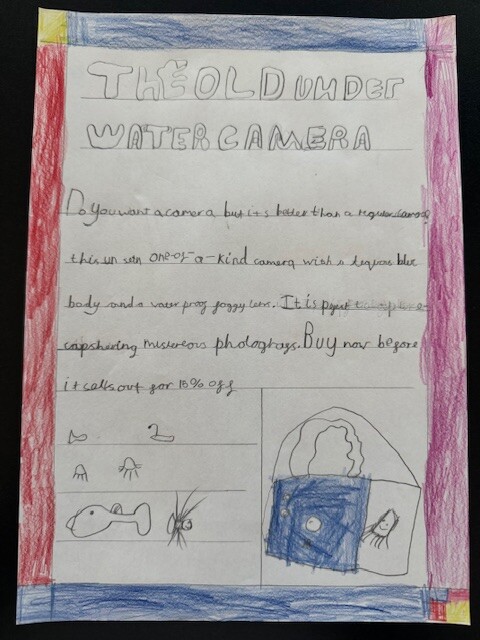 THE OLD UNDER
WATER CAMERA
Do you want a camera but it's better than a reguler camera
this un one-of-a-kind camera with a blue
body and a water prog foggy lens. It is
capshering misureous photograjs. Buy now before
it sells out for 15% off